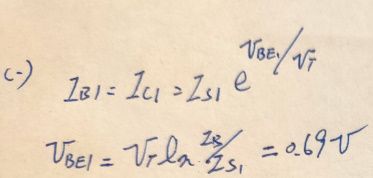 (-) I_{B1} = I_{C1} = I_{S1} e^{V_{BE1}/V_T}
V_{BE1} = V_T ln I_B/I_{S1} = 0.69V